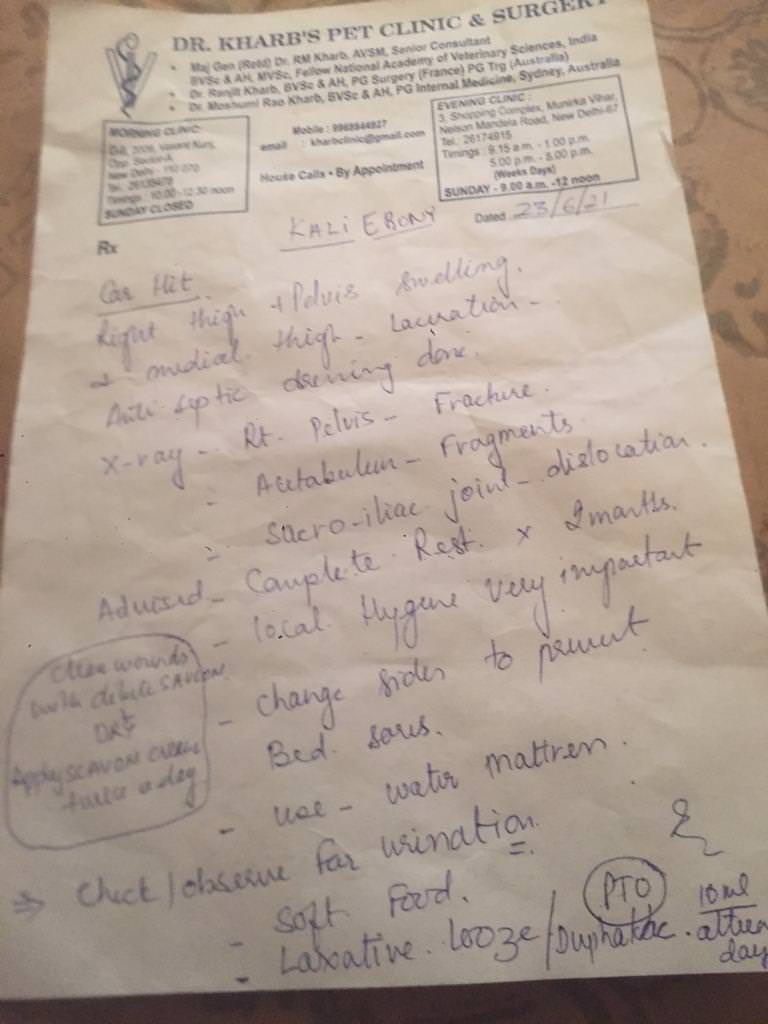 DR. KHARB'S PET CLINIC & SURGERY
• Maj Gen (Retd) Dr. RM Kharb, AVSM, Senior Consultant
BVSc & AH, MVSc, Fellow National Academy of Veterinary Sciences, India
• Dr. Ranjit Kharb, BVSc & AH, PG Surgery (France) PG Trg (Australia)
• Dr. Moshumi Rao Kharb, BVSc & AH, PG Internal Medicine, Sydney, Australia
MORNING CLINIC:
Vasant Kunj,
Opp. Sector-A
New Delhi -
Timings : 10.00 - 12.30 noon
SUNDAY CLOSED
Mobile :
email : kharbclinic@gmail.com
House Calls • By Appointment
EVENING CLINIC :
3, Shopping Complex, Munirka Vihar,
Nelson Mandela Road, New Delhi-67
Tel.: 26174915
Timings : 9.15 a.m. - 1.00 p.m.
5.00 p.m. - 8.00 p.m.
(Weeks Days)
SUNDAY - 9.00 a.m. -12 noon
Rx
KALI EBONY
Dated 23/6/21
Car Hit.
Right thigh + Pelvis swelling.
medial thigh - Laceration -
Anti septic dressing done.
X-ray - Rt. Pelvis - Fracture.
- Acetabulum - Fragments
- Sacro-iliac joint - dislocation.
Advised - Complete Rest. x 2 months.
- local Hygene very important
- change sides to prevent
Bed sores.
- use - water mattress.
Clean wounds
with dilute SAVLON
DRY
Apply SCAVON CREAM
twice a day
⇒ Check / observe for urination.
- Soft Food.
- Laxative. Looze / Duphalac. 10 ml
day
PTO